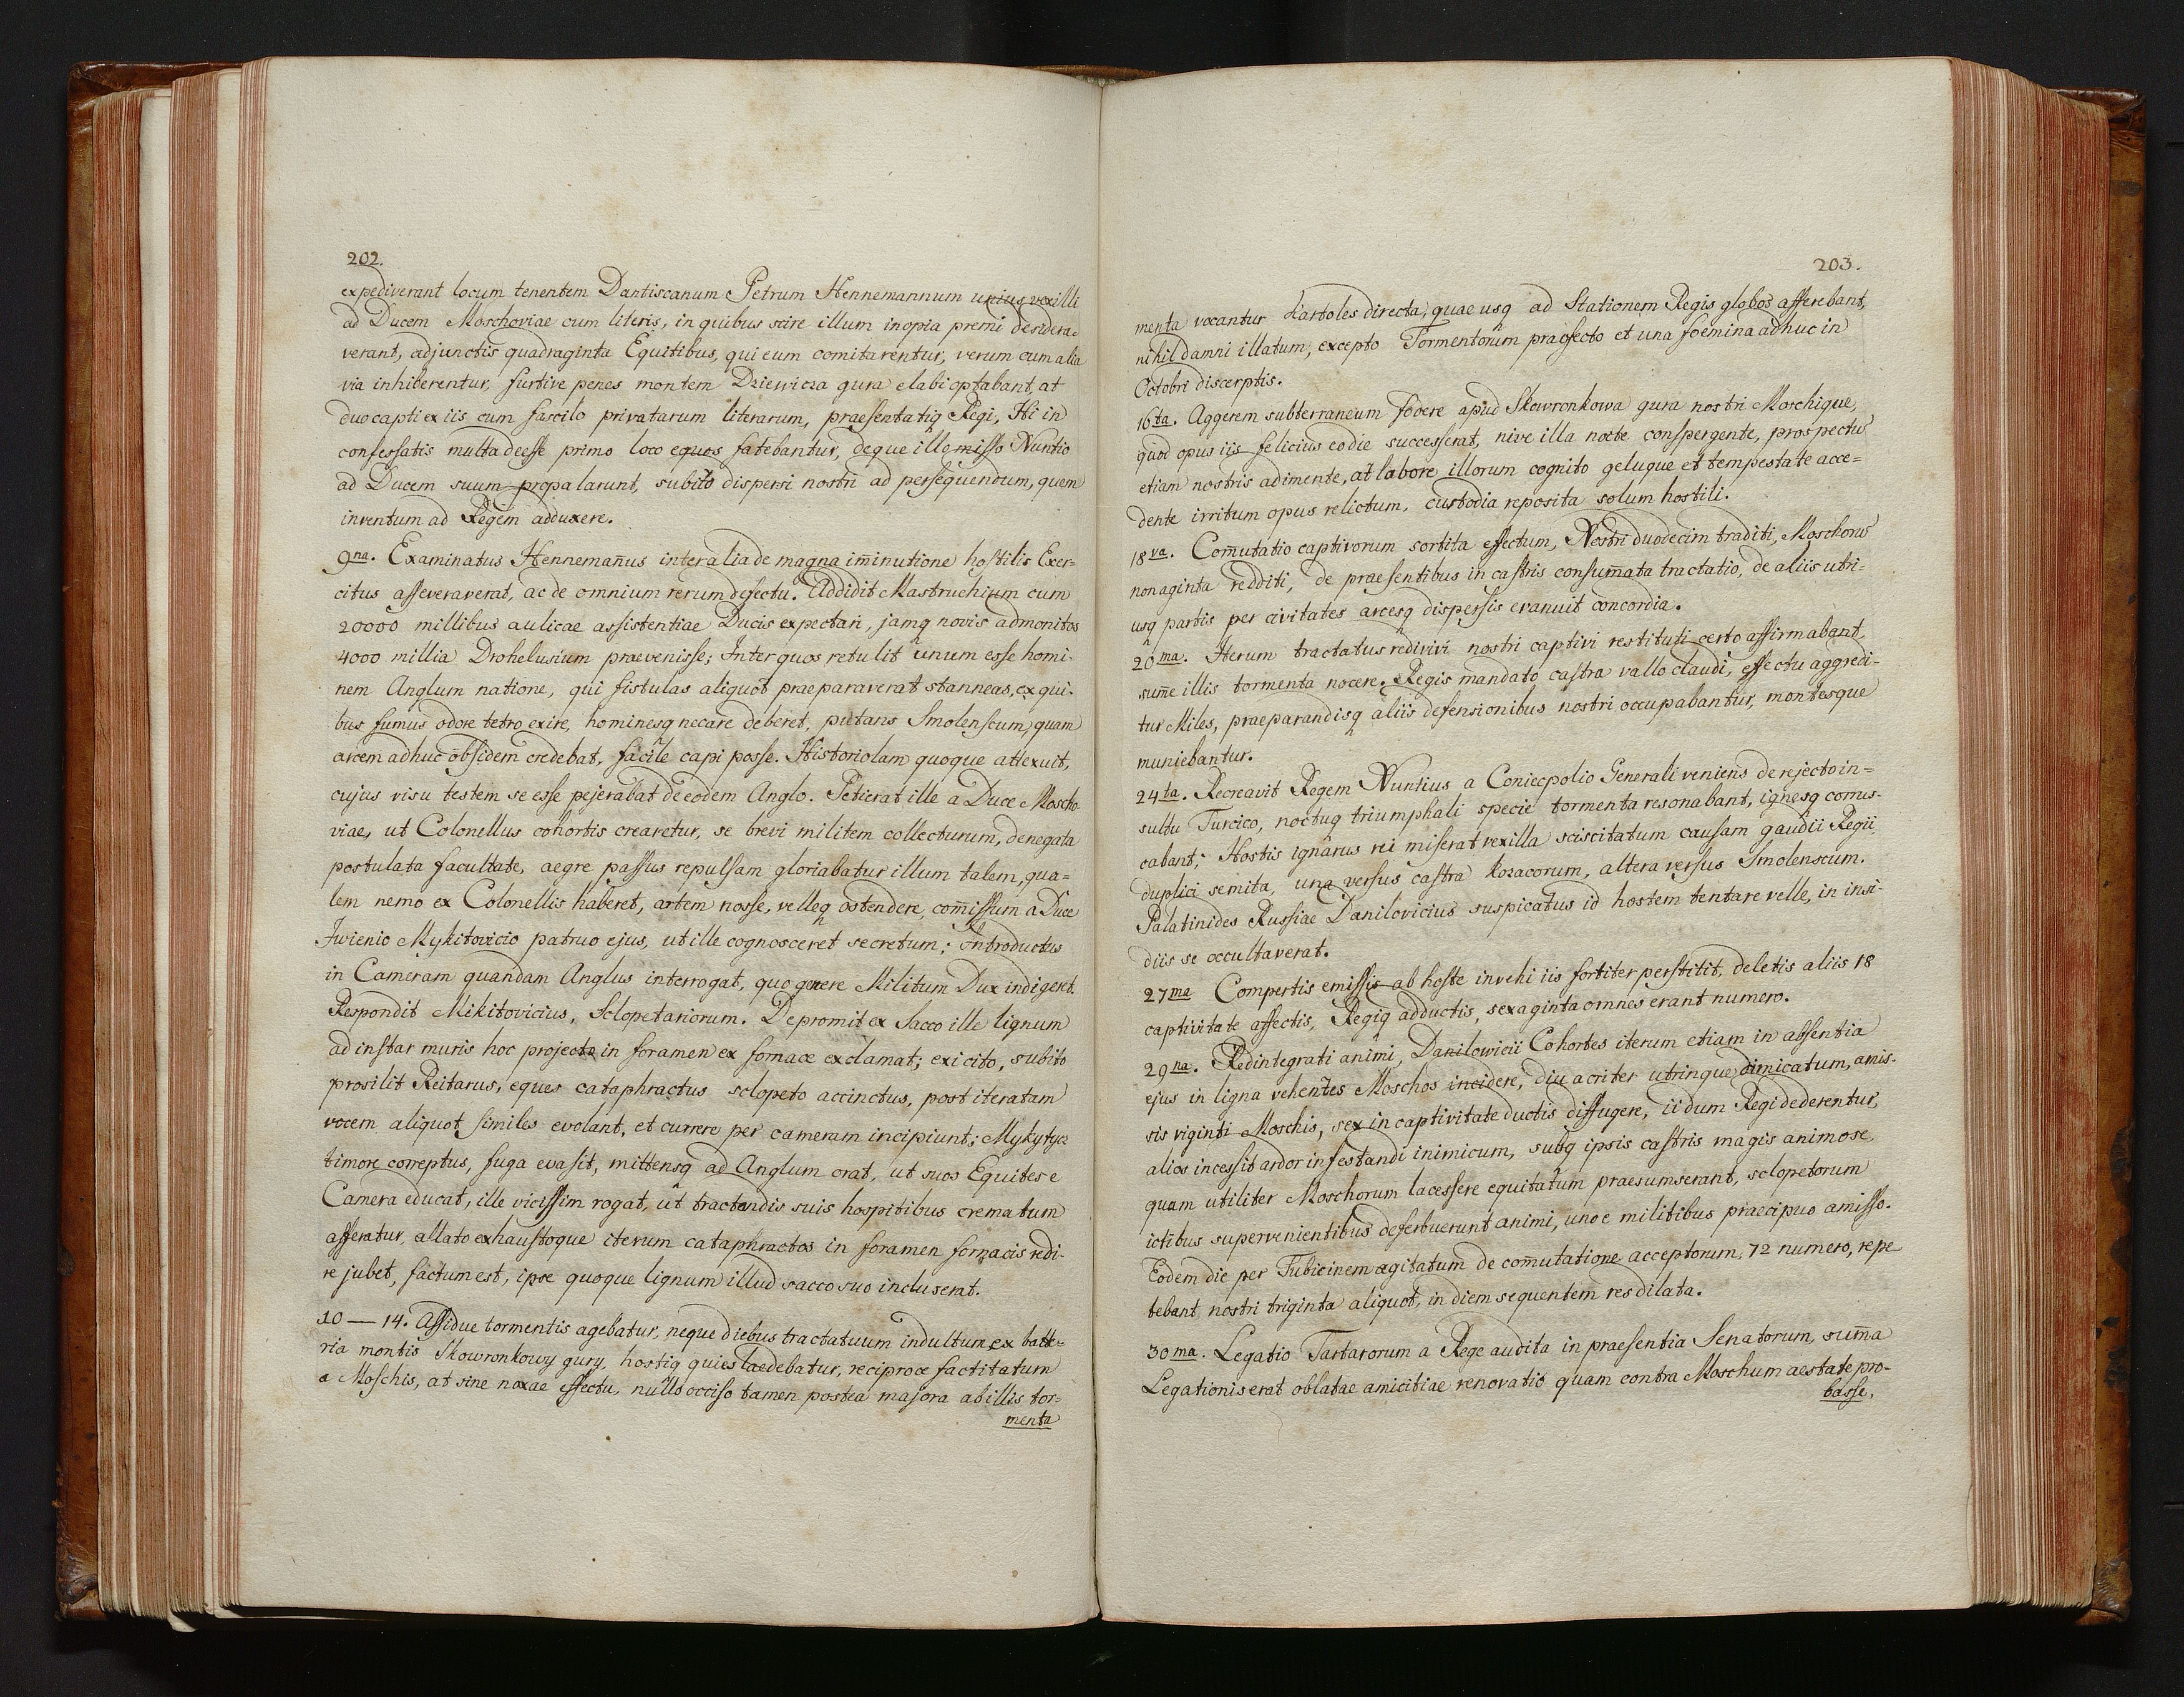 202.
expediverant locum tenentem Dantiscanum Petrum Hennemannum unius vexilli
ad Ducem Moschoviae cum literis, in quibus scire illum inopia premi desidera=
verant, adjunctis quadraginta Equitibus, qui eum comitarentur, verum cum alia
via inhiberentur, furtive penes montem Dziewicza gura elabi optabant, at
duo capti ex iis cum fascilo privatarum literarum, praesentatiq Regi, Hi in
confessatis multa deesse primo loco equos fatebantur, deque ille misso Nuntio
ad Ducem suum propalarunt, subito dispersi nostri ad persequendum, quem
inventum ad Regem adduxere.
9na. Examinatus Hennemañus inter alia de magna im̄inutione hostilis Exer-
citus asseveraverat, ac de omnium rerum defectu. Addidit Mastruchium cum
20000 millibus aulicae assistentiae Ducis expectari, jamq novis admonitos
4000 millia Drohelusium praevenisse; Inter quos retulit unum esse homi-
nem Anglum natione, qui fistulas aliquot praeparaverat stanneas, ex qui-
bus fumus odore tetro exire, hominesq necare deberet, putans Smolenscum, quam
arcem adhuc obsidem credebat, facile capi posse. Historiolam quoque attexuit,
cujus visu testem se esse pejerabat de eodem Anglo. Petierat ille a Duce Moscho
viae, ut Colonellus cohortis crearetur, se brevi militem collecturum, denegata
postulata facultate, aegre passus repulsam gloriabatur illum talem, qua=
lem nemo ex Colonellis haberet, artem nosse, velleq ostendere, com̄issum a Duce
Iwienio Mykitovicio patruo ejus, ut ille cognosceret secretum; Introductus
in Cameram quandam Anglus interrogat, quo genere Militum Dux indigeret.
Respondit Mikitovicius, Sclopetariorum. Depromit ex Sacco ille lignum
ad instar muris hoc projecto in foramen ex fornace exclamat; exi cito, subito
prosilit Reitarus, eques cataphractus sclopeto accinctus, post iteratam
vocem aliquot similes evolant, et currere per cameram incipiunt; Mykytycz
timore correptus, fuga evasit, mittensq ad Anglum orat, ut suos Equites e
Camera educat, ille vicissim rogat, ut tractandis suis hospitibus crematum
afferatur, allato exhaustoque iterum cataphractos in foramen fornacis redi-
re jubet, factum est, ipse quoque lignum illud sacco suo incluserat.
10 — 14. Assidue tormentis agebatur, neque diebus tractatuum indultum, ex batte-
ria montis Skowronkowy gury, hostiq quies laedebatur, reciproce factitatum
a Moschis, at sine noxae effectu, nullo occiso tamen postea majora ab illis tor=
menta
203.
menta vocantur Kartoles directa, quae usq ad Stationem Regis globos afferebant,
nihil damni illatum, excepto Tormentorum praefecto et una foemina adhuc in
Octobri discerptis.
16ta. Aggerem subterraneum fodere apud Skowronkowa gura nostri Moschique,
quod opus iis felicius eodie successerat, nive illa nocte conspergente, prospectus
etiam nostris adimente, at labore illorum cognito geluque et tempestate acce=
dente irritum opus relictum, custodia reposita solum hostili.
18va. Com̄utatio captivorum sortita effectum, Nostri duodecim traditi, Moschorus
nonaginta redditi, de praesentibus in castris consum̄ata tractatio, de aliis utri=
usq partis per civitates arcesq dispersis evanuit concordia.
20ma. Iterum tractatus redivivi nostri captivi restituti certo affirmabant,
sum̄e illis tormenta nocere. Regis mandato castra vallo claudi, effectu aggredi-
tur Miles, praeparandisq aliis defensionibus nostri occupabantur, montesque
muniebantur.
24ta. Recreavit Regem Nuntius a Coniecpolio Generali veniens de rejecto in=
sultu Turcico, noctuq triumphali specie tormenta resonabant, ignesq corus-
cabant; Hostis ignarus rei miserat vexilla sciscitatum causam gaudii Regii,
duplici semita, una versus castra kozacorum, altera versus Smolenscum.
Palatinides Russiae Danilovicius suspicatus id hostem tentare velle, in insi-
diis se occultaverat.
27ma Compertis emissis ab hoste invehi iis fortiter perstitit, deletis aliis 18
captivitate affectis, Regiq adductis, sexaginta omnes erant numero.
29na. Redintegrati animi, Danilowicii Cohortes iterum etiam in absentia
ejus in ligna vehentes Moschos incidere, diu acriter utrinque dimicatum, amis-
sis viginti Moschis, sex in captivitate ductis diffugere, ii dum Regi dederentur,
alios incessit ardor infestandi inimicum, subq ipsis castris magis animose,
quam utiliter Moschorum lacessere equitatum praesumserant, sclopetorum
ictibus supervenientibus deferbuerunt animi, uno e militibus praecipuo amisso.
Eodem die per Tubicinem agitatum de com̄utatione acceptorum, 72 numero, repe
tebant nostri triginta aliquot, in diem sequentem res dilata.
30ma. Legatio Tartarorum a Rege audita in praesentia Senatorum, sum̄a
Legationis erat oblatae amicitiae renovatio quam contra Moschum aestate pro-
basse,